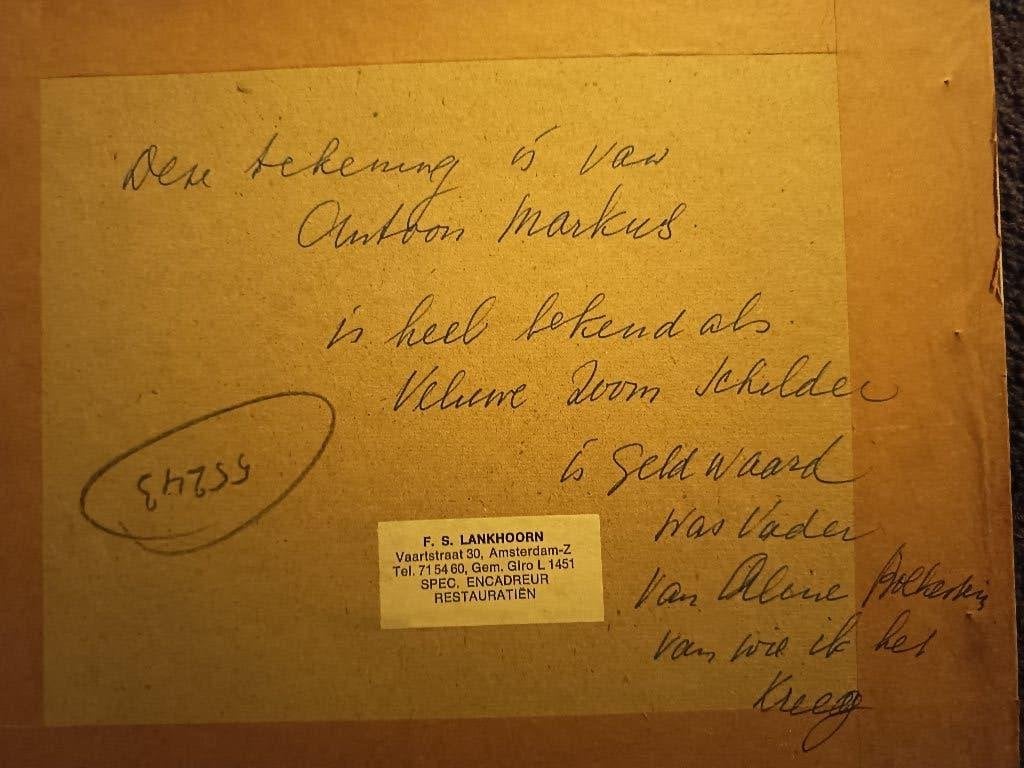 Deze tekening is van
Antoon Markus
is heel bekend als
Veluwe Zoom Schilder
is geld waard
was Vader
van Aline
van wie ik het
Kreeg
55243
F. S. LANKHOORN
Vaartstraat 30, Amsterdam-Z
Tel. 71 54 60, Gem. Giro L 1451
SPEC. ENCADREUR
RESTAURATIËN